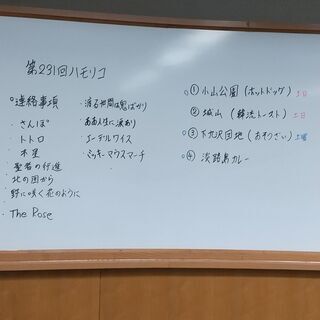 第231回ハモリコ
○連絡事項
・さんぽ
・トトロ
・木星
・聖者の行進
・北の国から
・野に咲く花のように
・The Rose
・渡る世間は鬼ばかり
・ああ人生に涙あり
・エーデルワイス
・ミッキーマウスマーチ
○① 小山公園(ホットドッグ) 土日
○② 城山(韓流トースト) 土日
○③ 下九沢団地(おそうざい) 土曜
○④ 淡路島カレー